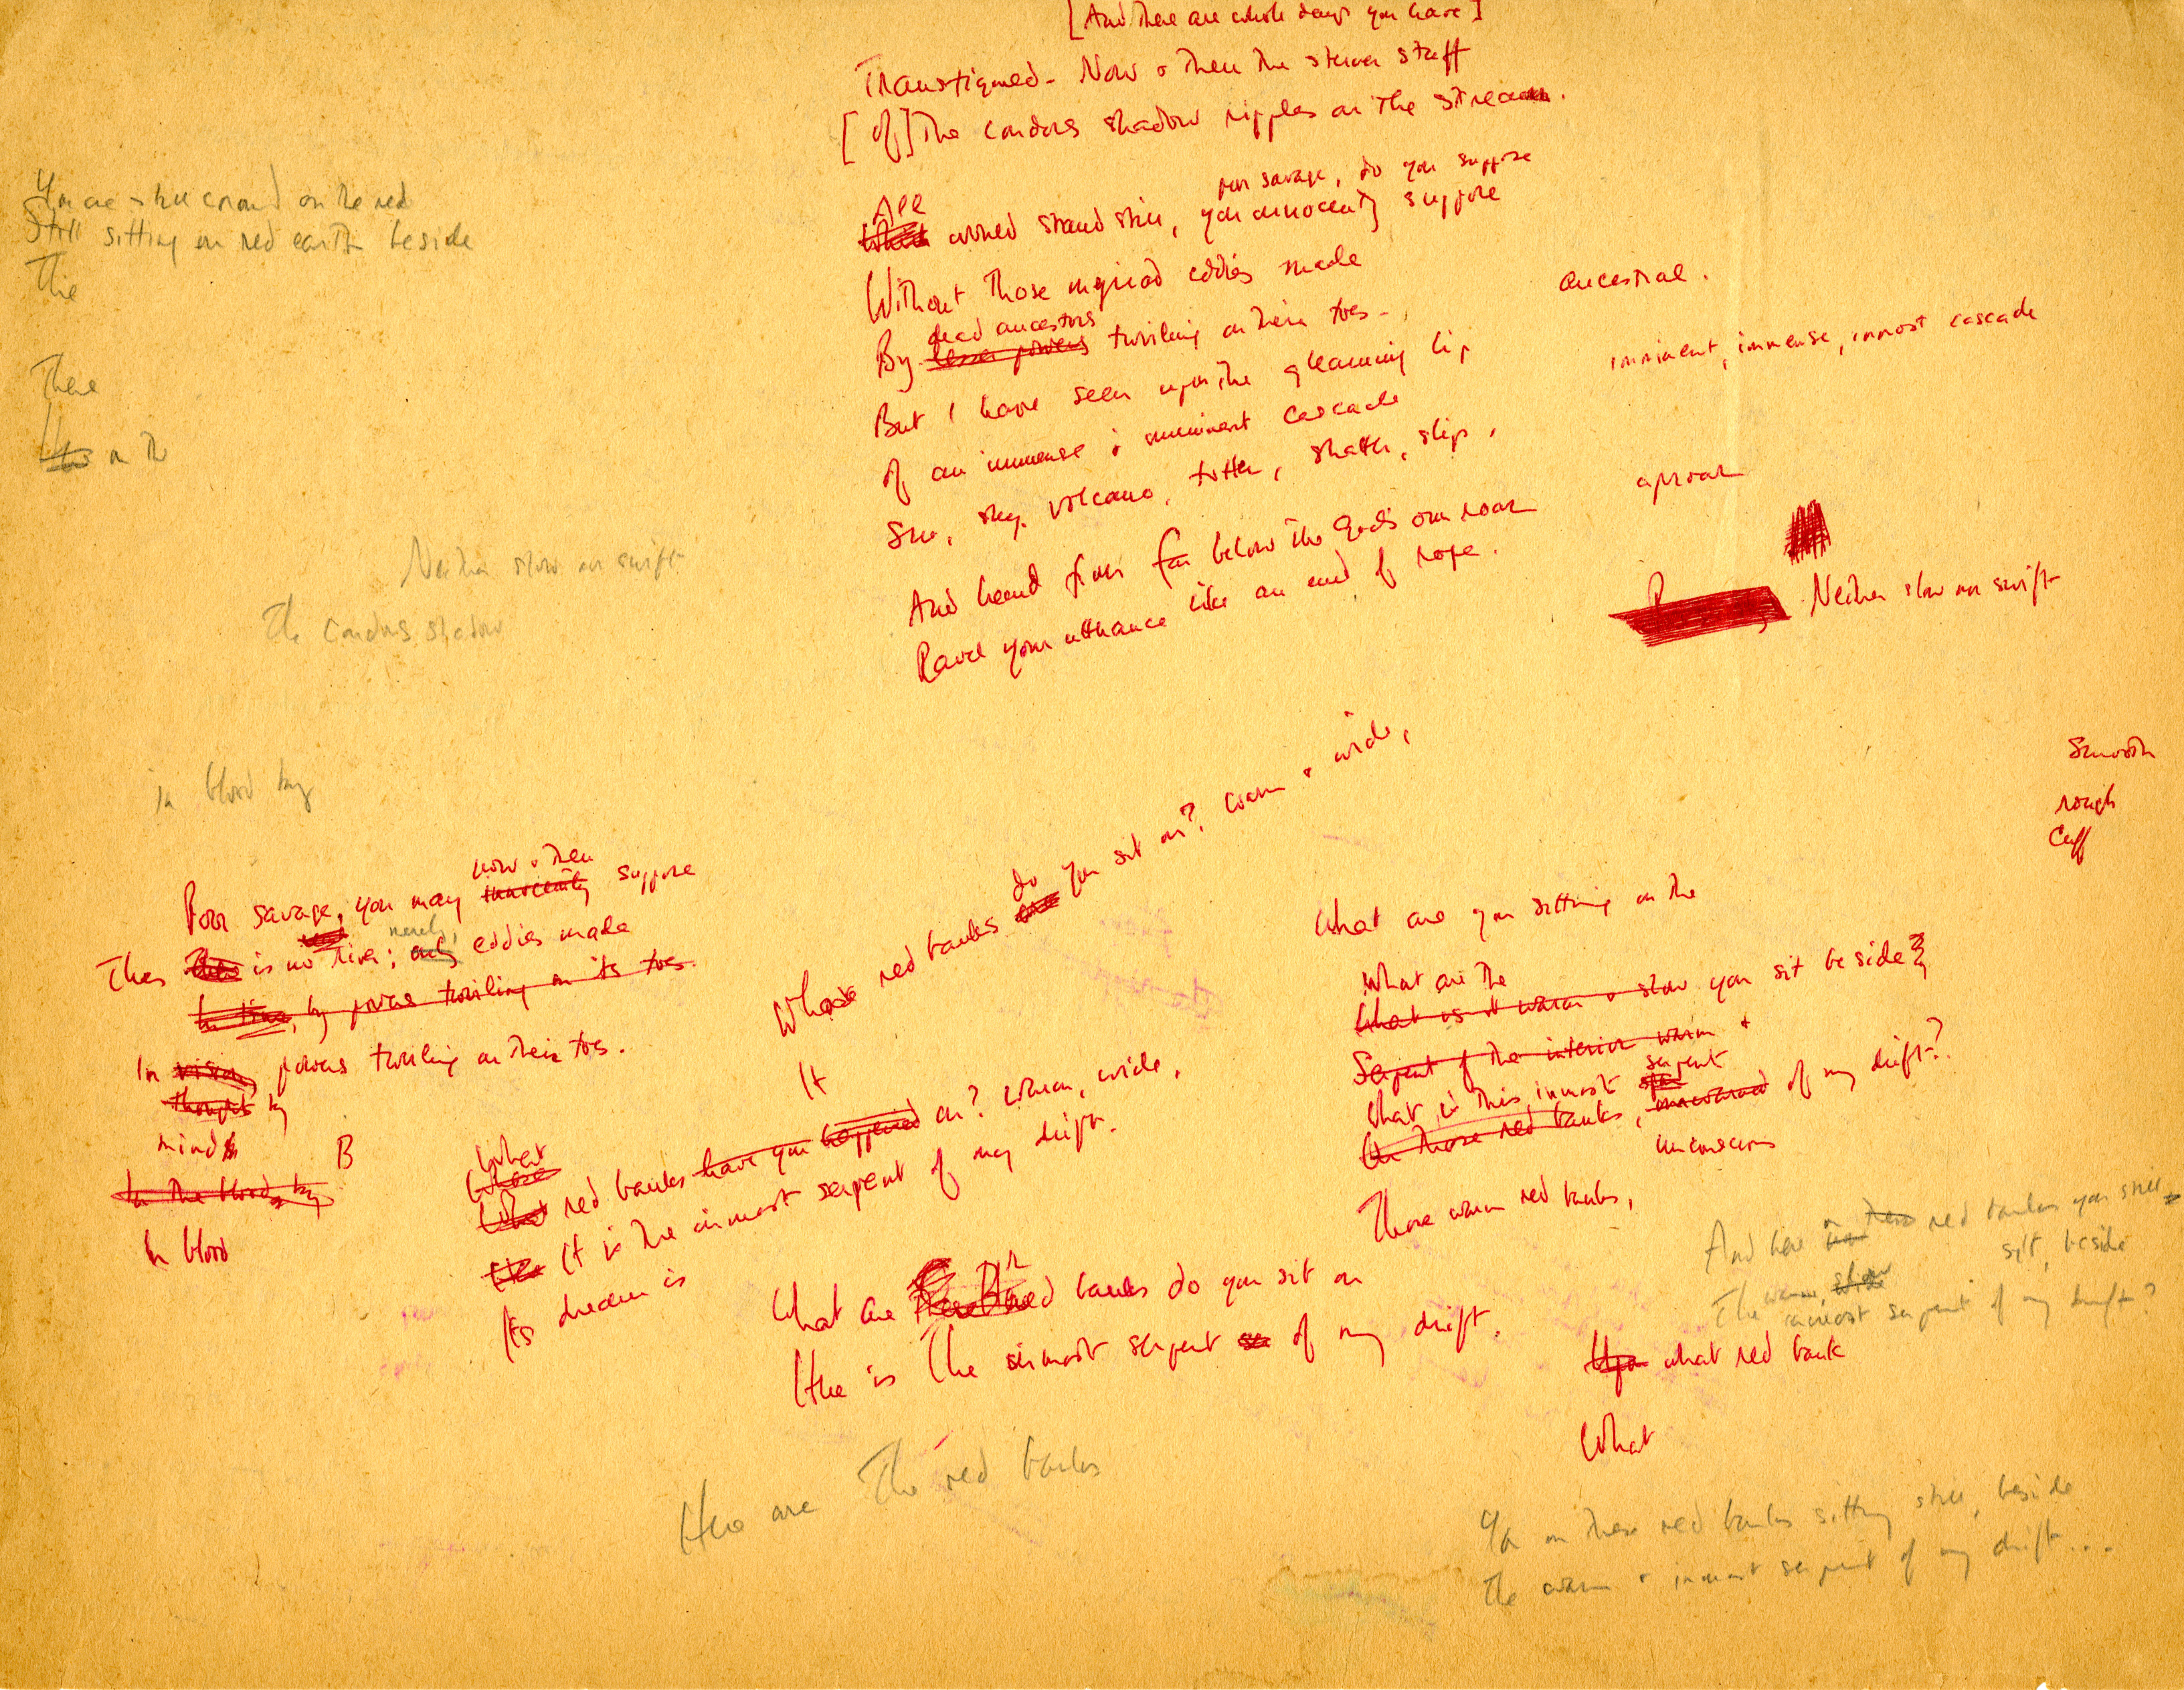 [And there are whole days you have]
Transfigured - Now & then the sterner stuff
[of] The condors shadow ripples on the stream.
poor savage, do you suppose
All
would stand still, you innocently suppose
Without those myriad eddies made
dead ancestors
By lesser powers twirling on their toes -
But I have seen upon the gleaming lip
of an immense & imminent cascade
Sun, sky, volcano, totter, shatter, slip,
And heard from far below the God's own roar
Ravel your utterance like an end of rope.
ancestral.
imminent, immense, inmost cascade
uproar
Neither slow nor swift
Smooth
rough
Cuff
You are still on the red
Still sitting on red earth beside
The
There
on th
Neither slow nor swift
The condors shadow
in blood by
now & then
Poor savage, you may innocently suppose
merely,
There is no river; only eddies made
In time, by powers twirling on its toes.
In vision powers twirling on their toes.
thought by
mind
B
In the blood, by
In blood
do
Whose red banks are you sit on? warm & wide,
It
What
Whose
What red banks have you happened on? warm, wide,
It is the inmost serpent of my drift.
Its dream is
What are red banks do you sit on
Here is The inmost serpent of my drift.
Here are The red banks
What are you sitting on the
What are the
What is it warm & slow you sit beside?
Serpent of the interior warm &
serpent
What is this inmost of my drift?
On those red banks,
unconscious
Those warm red banks,
And here on these red banks you still
sit, beside
warm, slow
The inmost serpent of my drift?
Upon what red bank
What
on these red banks sitting still, beside
The warm & inmost serpent of my drift...